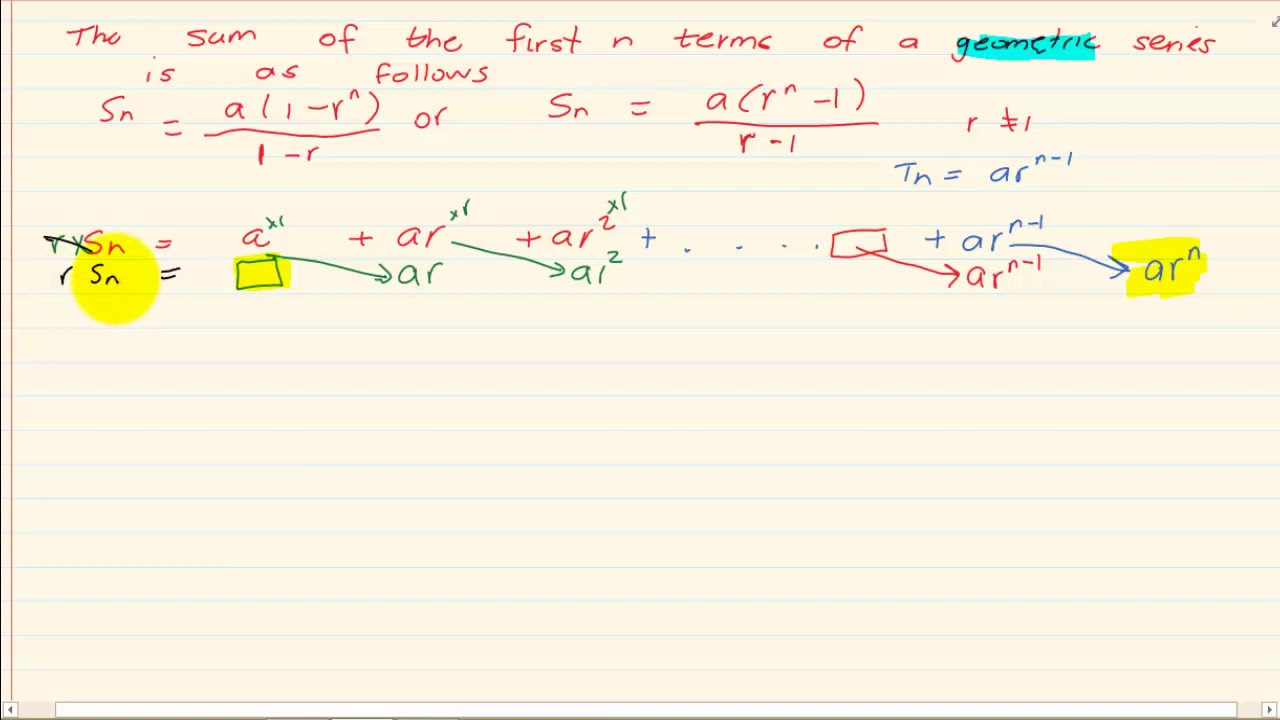 The sum of the first n terms of a geometric series
is as follows
Sn = a(1-rⁿ) / 1-r or Sn = a(rⁿ-1) / r-1 r ≠ 1
Tn = arⁿ⁻¹
r× Sn = a ×r + ar ×r + ar² ×r + . . . . + arⁿ⁻¹
r Sn = ar ar² arⁿ⁻¹ arⁿ